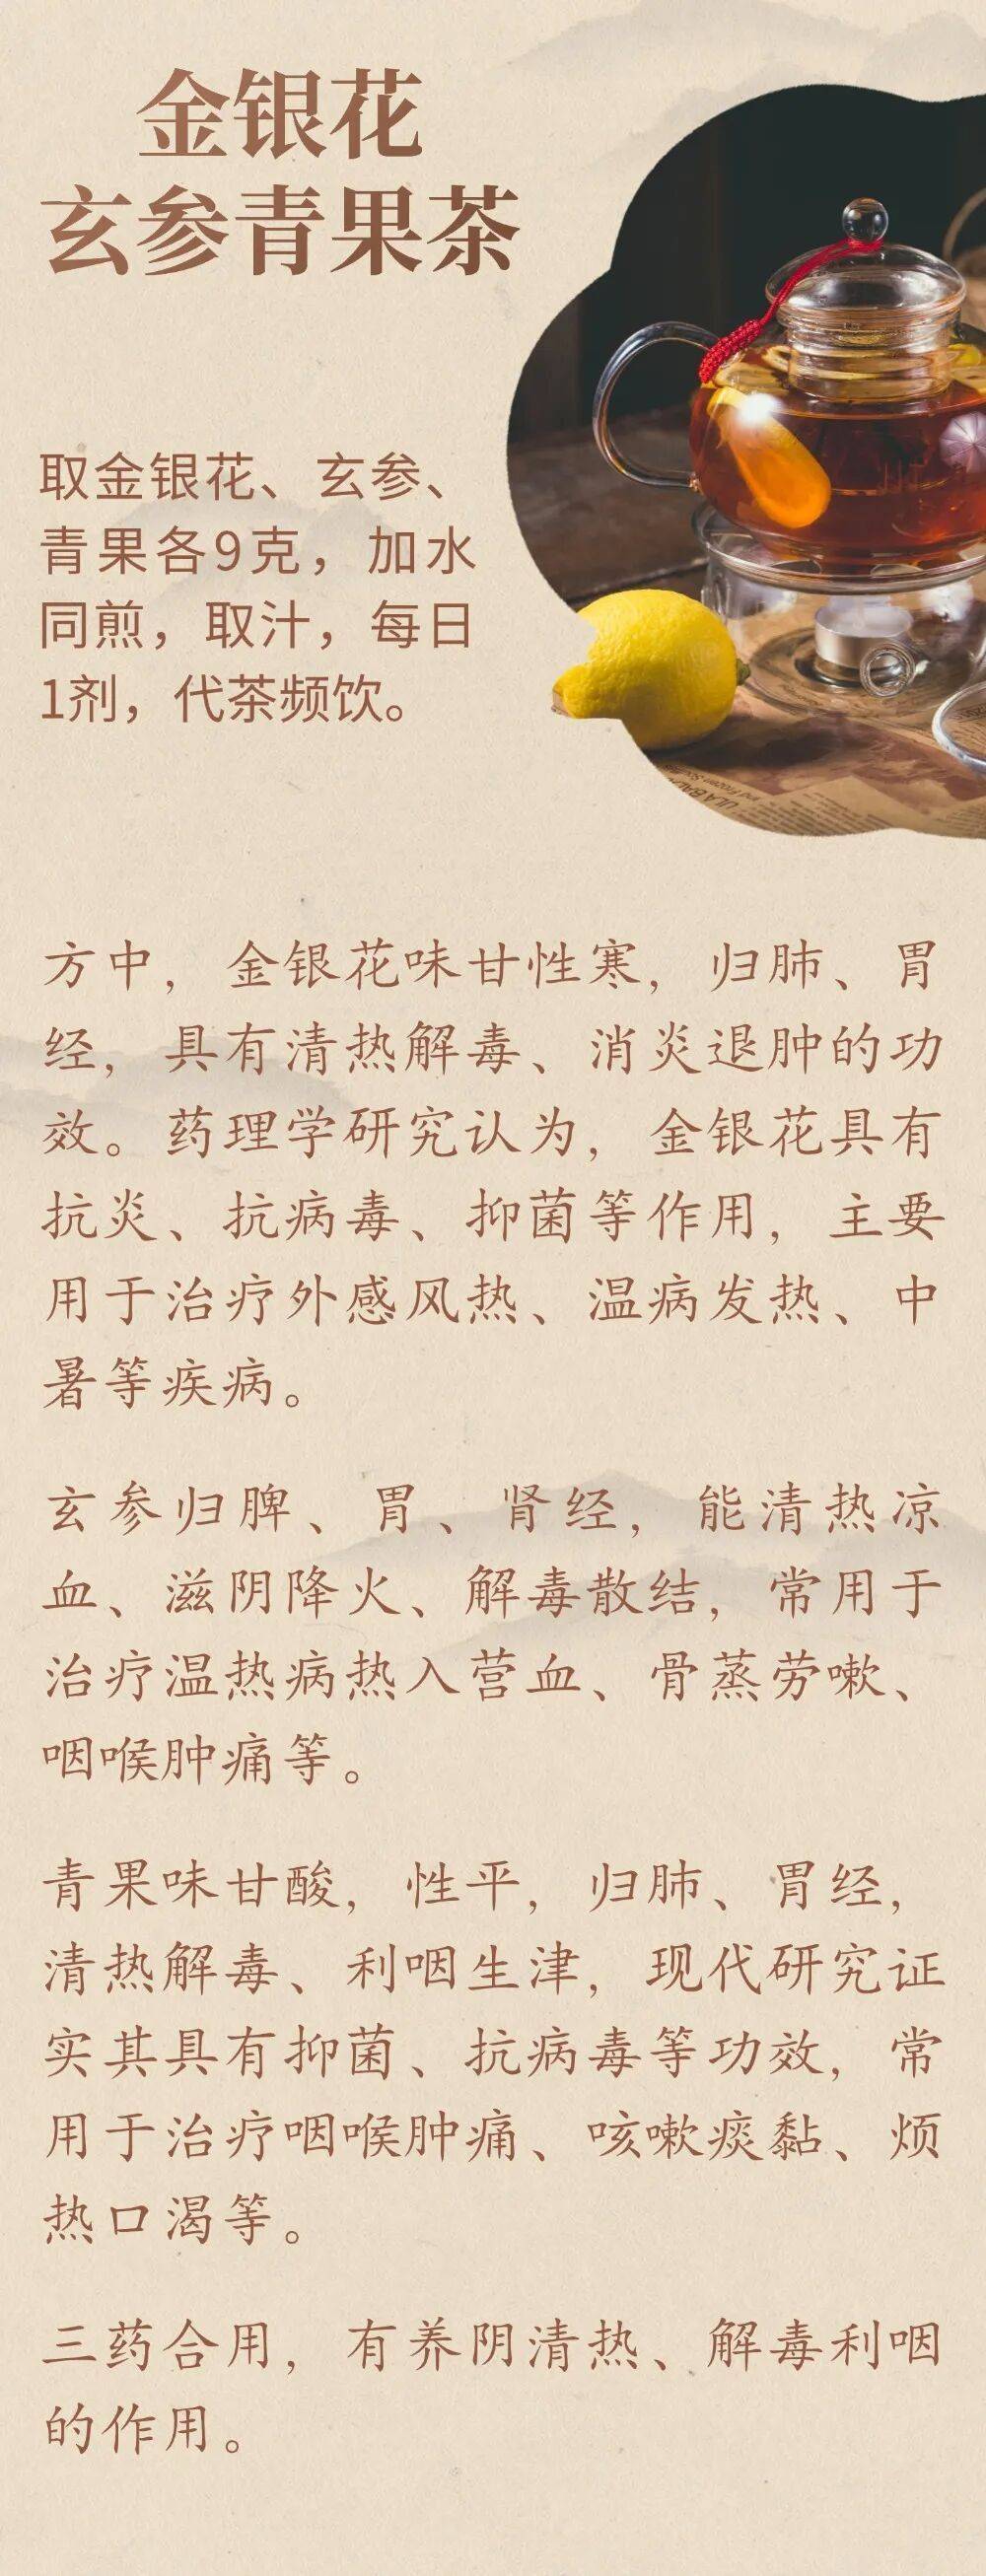 金银花
玄参青果茶
取金银花、玄参、
青果各9克，加水
同煎，取汁，每日
1剂，代茶频饮。
方中，金银花味甘性寒，归肺、胃
经，具有清热解毒、消炎退肿的功
效。药理学研究认为，金银花具有
抗炎、抗病毒、抑菌等作用，主要
用于治疗外感风热、温病发热、中
暑等疾病。
玄参归脾、胃、肾经，能清热凉
血、滋阴降火、解毒散结，常用于
治疗温热病热入营血、骨蒸劳嗽、
咽喉肿痛等。
青果味甘酸，性平，归肺、胃经，
清热解毒、利咽生津，现代研究证
实其具有抑菌、抗病毒等功效，常
用于治疗咽喉肿痛、咳嗽痰黏、烦
热口渴等。
三药合用，有养阴清热、解毒利咽
的作用。